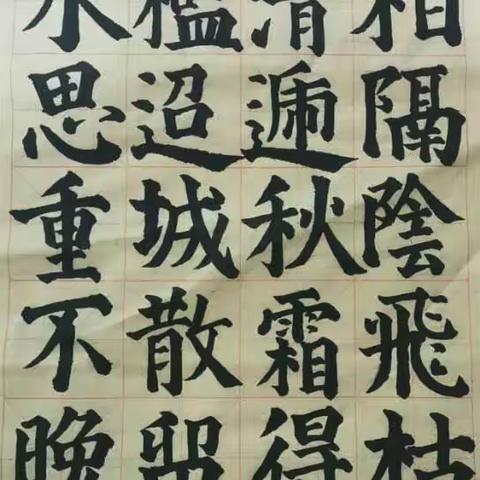 水檻清相
思迢逓隔
重城秋陰
不散霜飛
晚留得枯